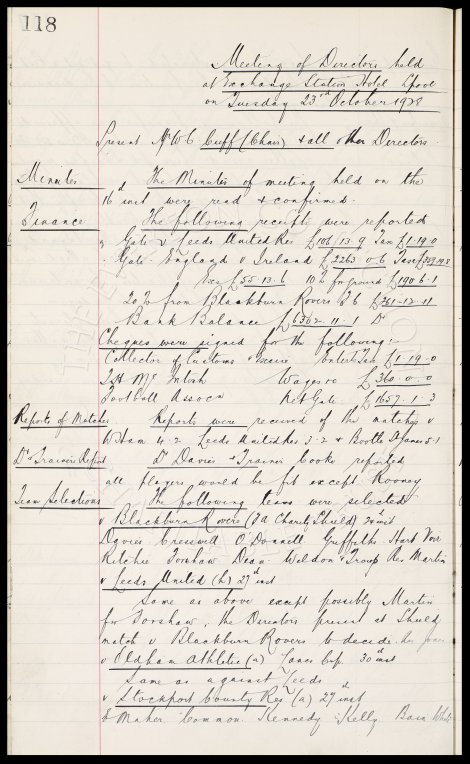 118
Meeting of Directors held
at Exchange Station Hotel Lpool
on Tuesday 23rd October 1928
Present Mr W C Cuff (Chair) & all other Directors.
Minutes The Minutes of meeting held on the
16th inst were read & confirmed.
Finance The following receipts were reported
Gate v Leeds United Res £106.13.9 Tax £1.19.0
Gate England v Ireland £2263.0.6 Tax
Exs £55.13.6 10% for ground £190.6.1
20% from Blackburn Rovers £261-12-11
Bank Balance £6362-11-1 Dr
Cheques were signed for the following:-
Collector of Customs & Excise Enter Tax £1.19.0
T. H. Mc Intosh Wages £360.0.0
Football Assocn Net Gate £1657.1.3
Reports of Matches Reports were received of the matches v
W Ham 4.2 Leeds United Res 3.2 & Bootle St James 5.1
Dr & Trainers Report Dr Davies & Trainer Cooke reported
all players would be fit except Rooney
Team Selections The following teams were selected
v Blackburn Rovers (Fa Charity Shield) 24th inst
Davies Cresswell O'Donnell Griffiths Hart Virr
Ritchie Forshaw Dean Weldon & Troup Res Martin
v Leeds United (h) 27th inst
Same as above except possibly Martin
for Forshaw, the Directors present at Shield
match v Blackburn Rovers to decide.
v Oldham Athletic (a) Lancs Cup. 30th inst
Same as against Leeds
v Stockport County Res (a) 27th inst
Maher Common Kennedy Kelly Bain White